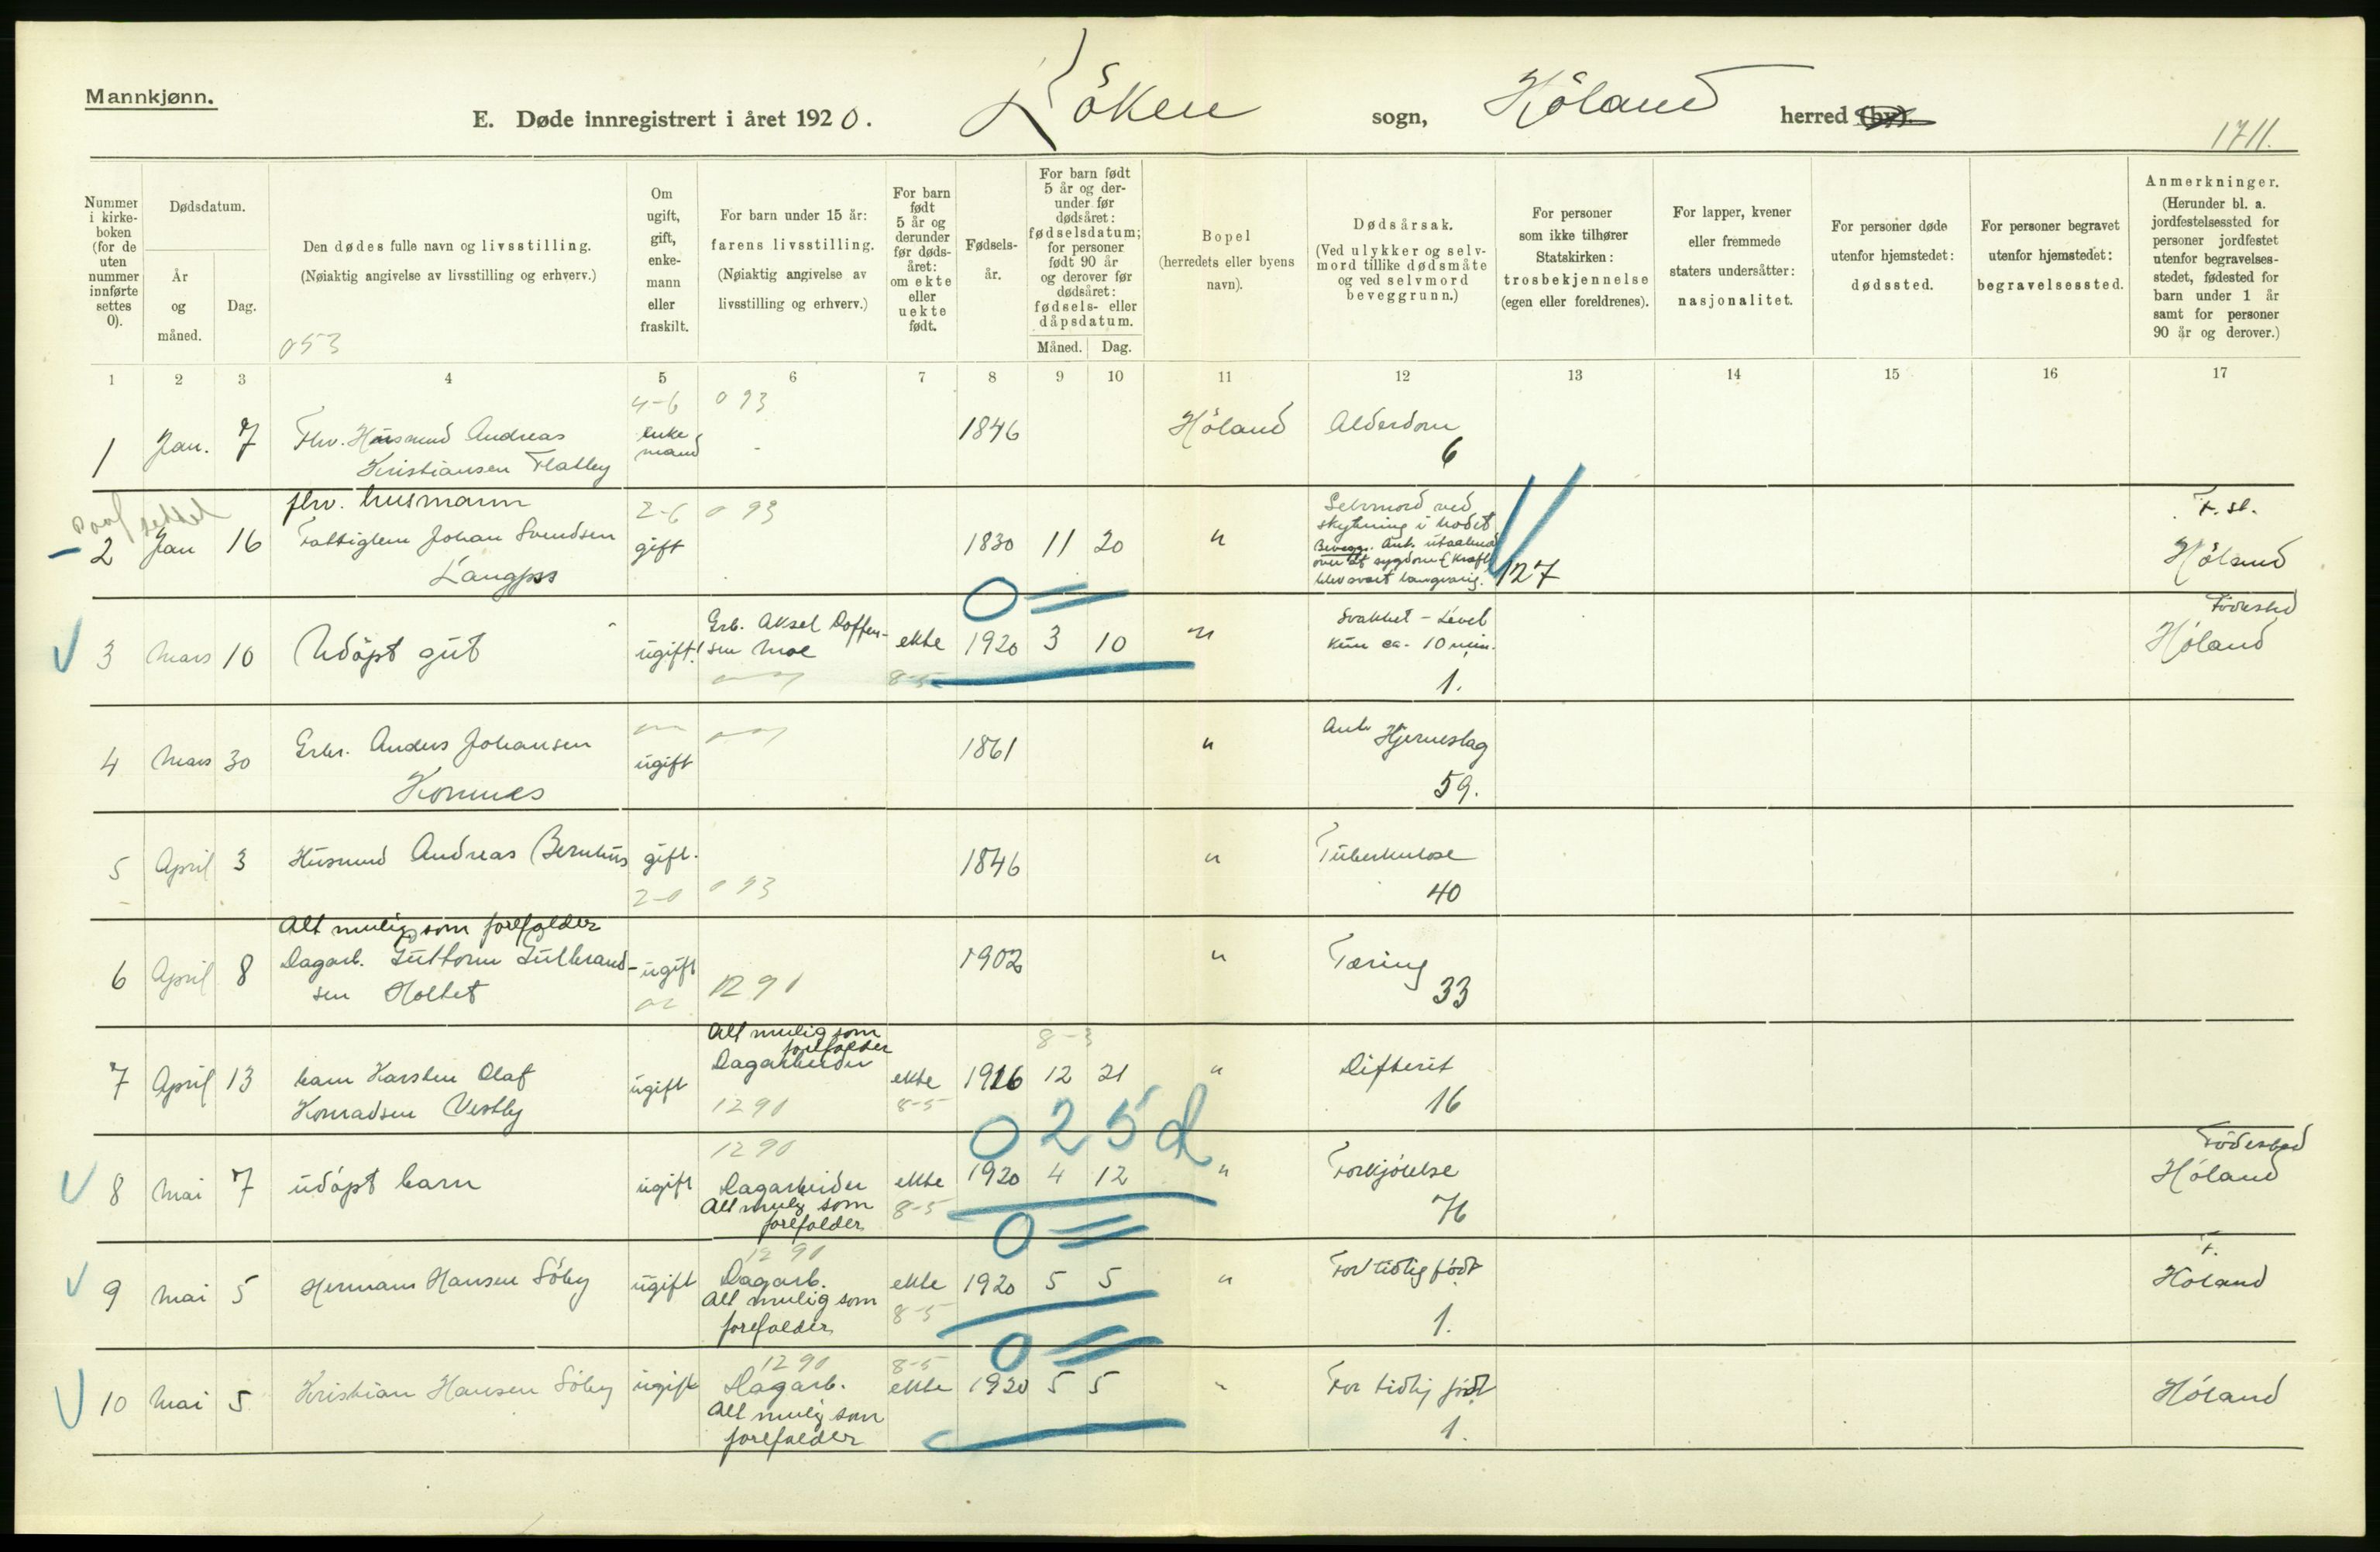 Mannkjønn.
E. Døde innregistrert i året 1920. Löken sogn, Höland herred (by).
1711.
Nummer i kirkeboken (for de uten nummer innførte settes 0).
Dødsdatum.
År og måned.
Dag.
Den dødes fulle navn og livsstilling.
(Nøiaktig angivelse av livsstilling og erhverv.)
053
Om ugift, gift, enkemann eller fraskilt.
For barn under 15 år: farens livsstilling.
(Nøiaktig angivelse av livsstilling og erhverv.)
For barn født 5 år og derunder før dødsåret: om ekte eller uekte født.
Fødselsår.
For barn født 5 år og derunder før dødsåret: fødselsdatum; for personer født 90 år og derover før dødsåret: fødsels- eller dåpsdatum.
Måned. Dag.
Bopel (herredets eller byens navn).
Dødsårsak.
(Ved ulykker og selvmord tillike dødsmåte og ved selvmord beveggrunn.)
For personer som ikke tilhører Statskirken: trosbekjennelse (egen eller foreldrenes).
For lapper, kvener eller fremmede staters undersåtter: nasjonalitet.
For personer døde utenfor hjemstedet: dødssted.
For personer begravet utenfor hjemstedet: begravelsessted.
Anmerkninger.
(Herunder bl. a. jordfestelsessted for personer jordfestet utenfor begravelsesstedet, fødested for barn under 1 år samt for personer 90 år og derover.)
1 2 3 4 5 6 7 8 9 10 11 12 13 14 15 16 17
4-6 093
1 Jan. 7 Fhv. Husmand Andreas enke 1846 Höland Alderdom
Kristiansen Flatby mand - 6
fhv. husmann 2-6 093 Selvmord ved F. st.
2 Jan 16 Fattiglem Johan Svendsen gift 1830 11 20 " skytning i hodet Höland
Langfoss Bevegg. Ant. utaalmod
over at sygdom (kræft)
blev svært langvarig. 127
0 =
3 Mars 10 Udöpt gut ugift! Grb. Aksel Doffen- ekte 1920 3 10 " Svakhet - Levet Födested
sen Moe 8-5 kun ca. 10 min. Höland
1.
4 Mars 30 Grbr. Anders Johansen ugift 1861 " Ant. Hjerneslag
Komnes 59.
5 April 3 Husmd Andreas Bernhus gift. 1846 " Tuberkulose
2-0 093 40
Alt mulig som forefalder
6 April 8 Dagarb. Guttorm Gulbrand- ugift 1902 " Tæring
sen Holtet 1291 33
Alt mulig som
forefalder 8-3
7 April 13 barn Karsten Olaf ugift Dagarbeider ekte 1916 12 21 " Difterit
Konradsen Vestby 1290 8-5 16
0 25 d
1290 Födested
8 Mai 7 udöpt barn ugift Dagarbeider ekte 1920 4 12 " Forkjölelse Höland
Alt mulig som 8-5 76
forefalder
0 =
1290 F.
9 Mai 5 Hermann Hansen Söby ugift Dagarb. ekte 1920 5 5 " For tidlig född Höland
Alt mulig som 8-5
forefalder 1.
0 =
1290 8-5
10 Mai 5 Kristian Hansen Söby ugift Dagarb. ekte 1920 5 5 " For tidlig född Höland
Alt mulig som
forefalder 1.